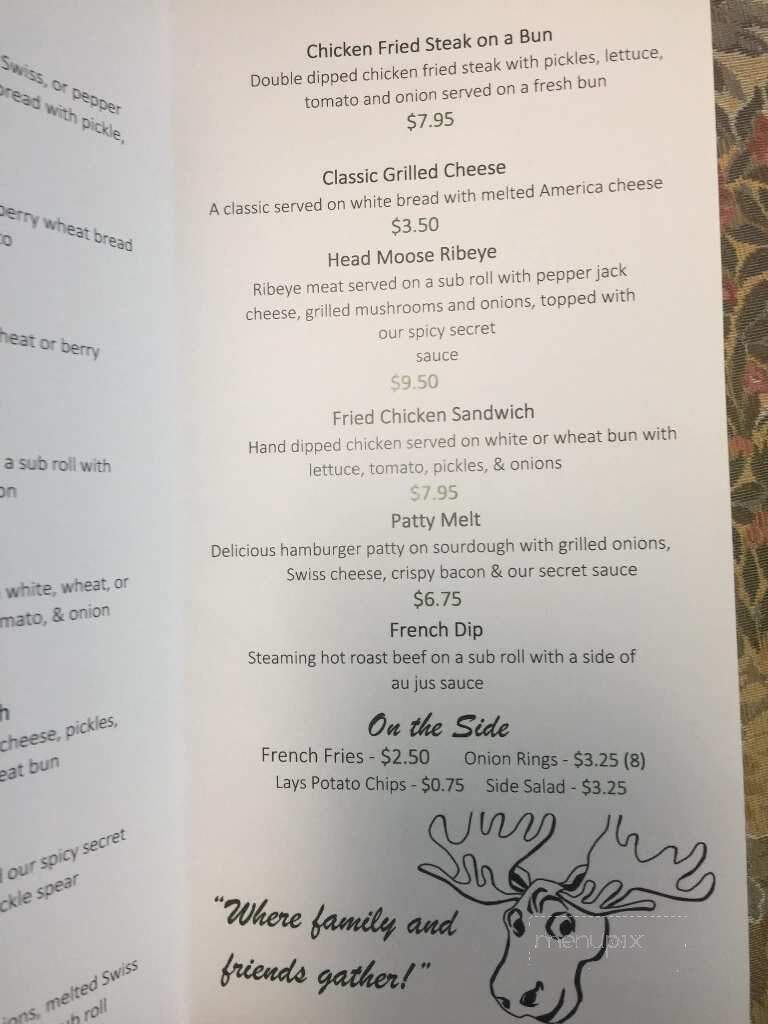 Swiss, or pepper
bread with pickle,
berry wheat bread
heat or berry
a sub roll with
on
white, wheat, or
mato, & onion
h
cheese, pickles,
eat bun
our spicy secret
ckle spear
ions, melted Swiss
ub roll
Chicken Fried Steak on a Bun
Double dipped chicken fried steak with pickles, lettuce,
tomato and onion served on a fresh bun
$7.95
Classic Grilled Cheese
A classic served on white bread with melted America cheese
$3.50
Head Moose Ribeye
Ribeye meat served on a sub roll with pepper jack
cheese, grilled mushrooms and onions, topped with
our spicy secret
sauce
$9.50
Fried Chicken Sandwich
Hand dipped chicken served on white or wheat bun with
lettuce, tomato, pickles, & onions
$7.95
Patty Melt
Delicious hamburger patty on sourdough with grilled onions,
Swiss cheese, crispy bacon & our secret sauce
$6.75
French Dip
Steaming hot roast beef on a sub roll with a side of
au jus sauce
On the Side
French Fries - $2.50 Onion Rings - $3.25 (8)
Lays Potato Chips - $0.75 Side Salad - $3.25
"Where family and
friends gather!"
menupix